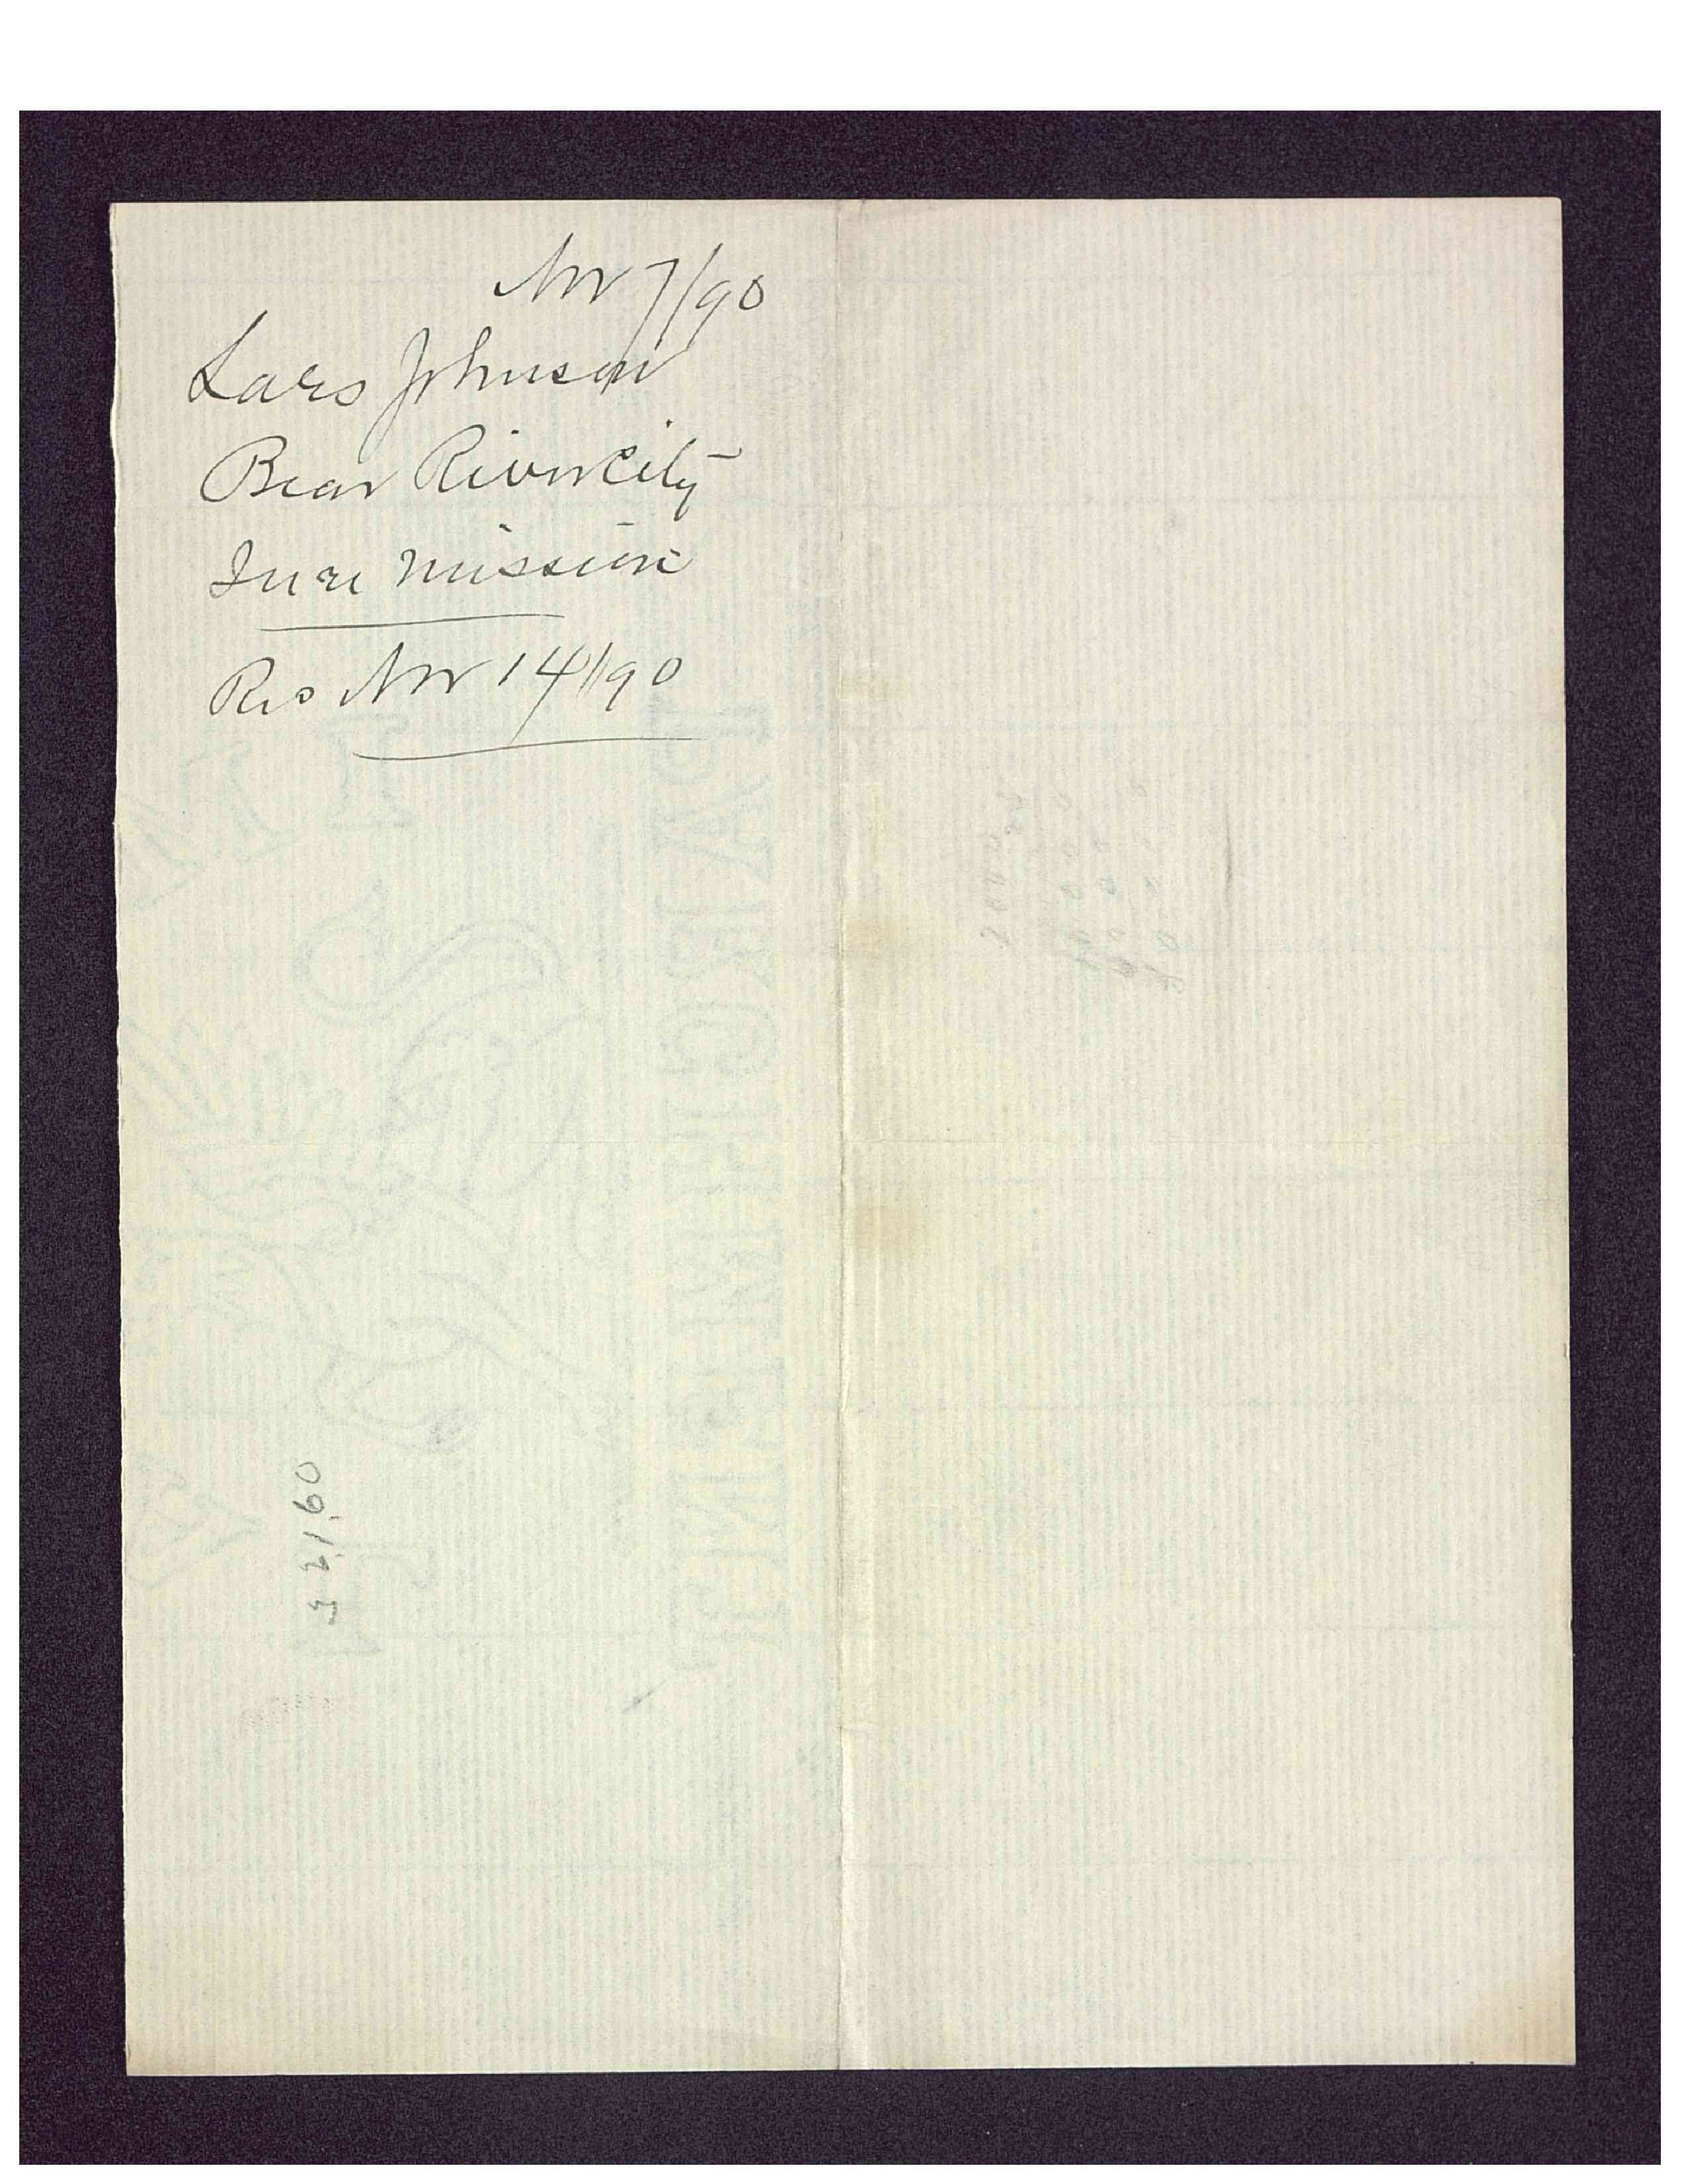 Nov 7/90
Lars Johnson
Bear River City
In re mission
Rec Nov 14/90